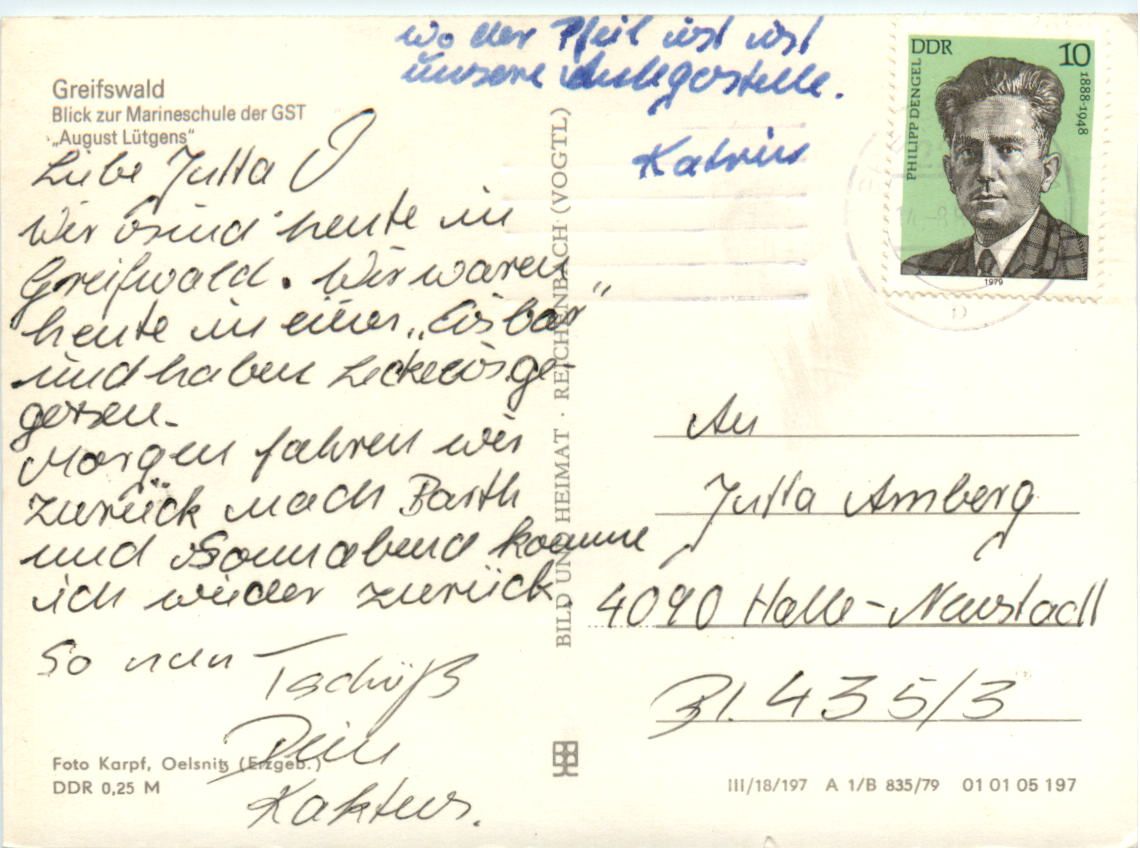 wo der Pfeil ist ist
unsere Anlegestelle.
Katrin
Greifswald
Blick zur Marineschule der GST
„August Lütgens“
Liebe Jutta
Wir sind heute in
Greifswald. Wir waren
heute in einer „Eisbar“
und haben Leckeeis ge-
gessen.
Morgen fahren wir
zurück nach Barth
und Sonnabend komme
ich wieder zurück
So nun Tschüß
Dein
Kaktus.
Foto Karpf, Oelsnitz (Erzgeb.)
DDR 0,25 M
BILD UND HEIMAT · REICHENBACH (VOGTL)
DDR 10
PHILIPP DENGEL
1888-1948
1979
An
Jutta Amberg
4090 Halle-Neustadt
Bl. 435/3
III/18/197 A 1/B 835/79 01 01 05 197